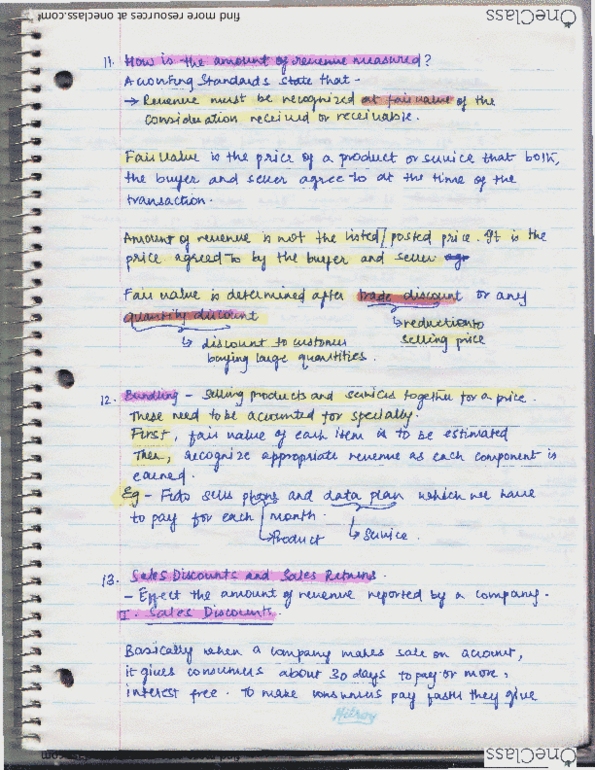 find more resources at oneclass.com
OneClass
11. How is the amount of revenue measured?
Accounting Standards state that -
→ Revenue must be recognized at fair value of the
consideration received or receivable.
Fair value is the price of a product or service that both,
the buyer and seller agree to at the time of the
transaction.
Amount of revenue is not the listed/posted price. It is the
price agreed to by the buyer and seller
Fair value is determined after trade discount or any
quantity discount
↳ reduction to
selling price
↳ discount to customer
buying large quantities.
12. Bundling - Selling products and services together for a price.
These need to be accounted for specially.
First, fair value of each item is to be estimated
Then, recognize appropriate revenue as each component is
earned.
Eg - Fido sells phone and data plan which we have
to pay for each month.
↳ Product
↳ Service.
13. Sales Discounts and Sales Returns.
- Effect the amount of revenue reported by a company.
I. Sales Discounts.
Basically when a company makes sale on account,
it gives consumers about 30 days to pay or more,
interest free. To make consumers pay faster they give
find more resources at oneclass.com
OneClass